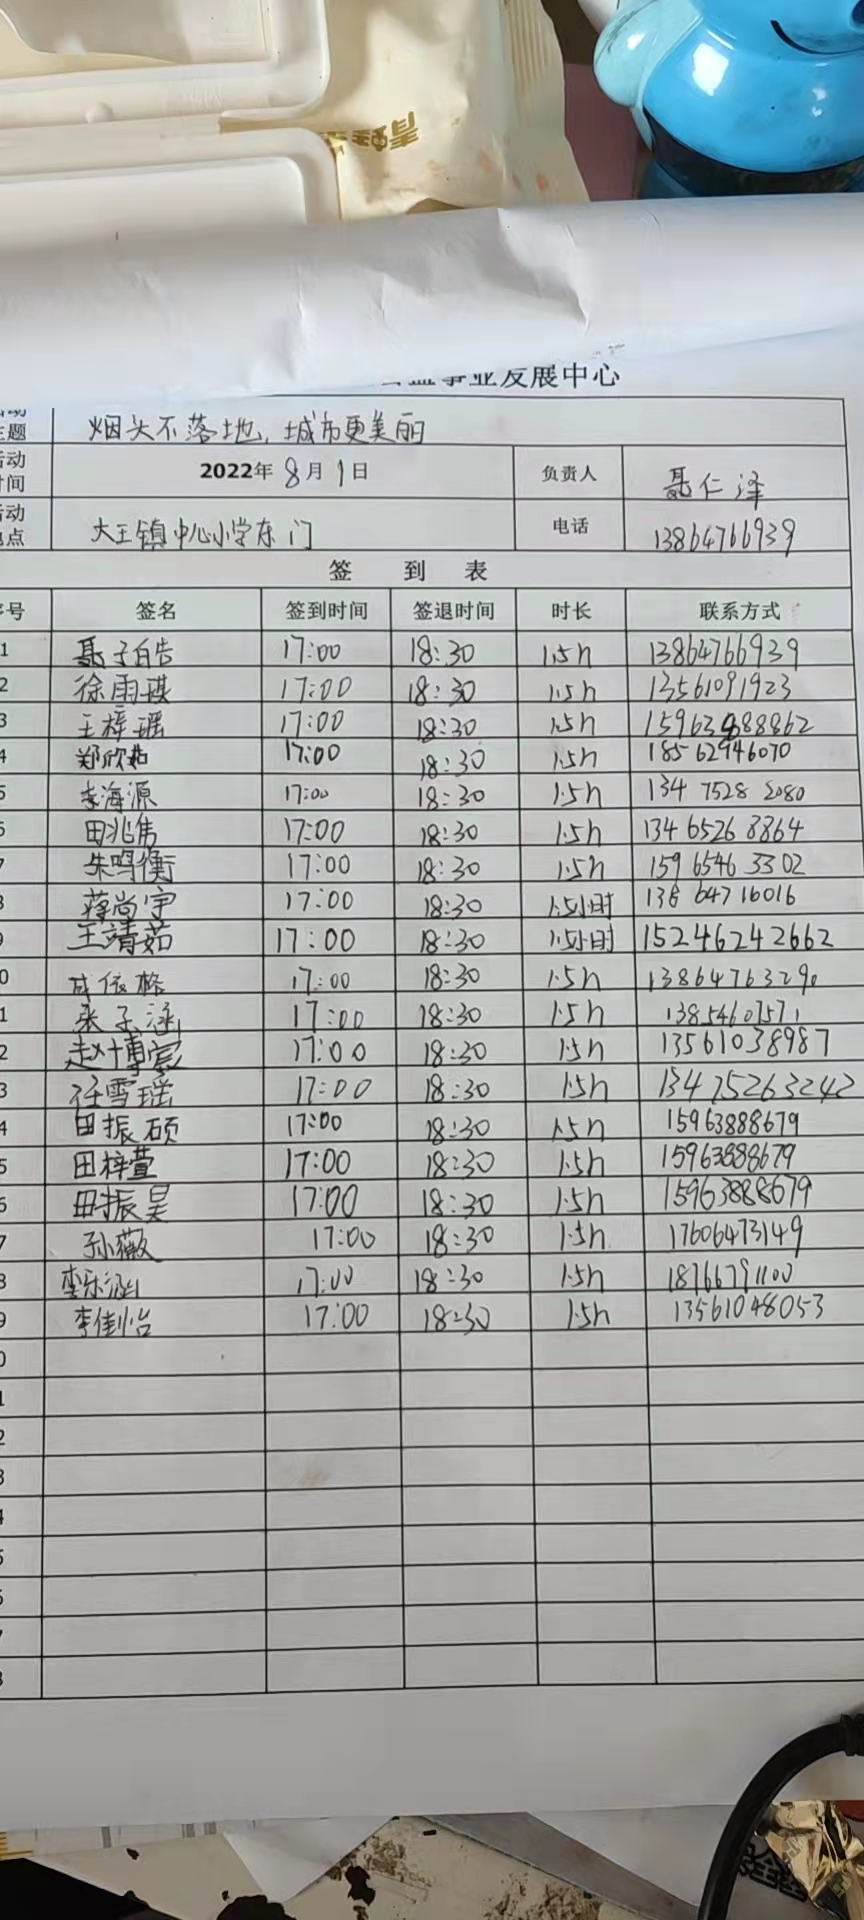 青蛙
公益事业发展中心
活动主题 烟头不落地，城市更美丽
活动时间 2022年8月1日 负责人 聂仁泽
活动地点 大王镇中心小学东门 电话 13864766939
签 到 表
序号 签名 签到时间 签退时间 时长 联系方式
1 聂子皓 17:00 18:30 1.5h 13864766939
2 徐雨琪 17:00 18:30 1.5h 13561091923
3 王梓瑶 17:00 18:30 1.5h
4 郑欣茹 17:00 18:30 1.5h 18562946070
5 李海源 17:00 18:30 1.5h 134 7528 2080
6 田兆隽 17:00 18:30 1.5h 134 6526 8864
7 朱鸣衡 17:00 18:30 1.5h 159 6546 3302
8 蒋尚宇 17:00 18:30 1.5小时 138 64716016
9 王靖茹 17:00 18:30 1.5小时 15246242662
0 成依格 17:00 18:30 1.5h 13864763290
1 张子涵 17:00 18:30 1.5h 13854607571
2 赵博豪 17:00 18:30 1.5h 13561038987
3 任雪瑶 17:00 18:30 1.5h 13475263242
4 田振硕 17:00 18:30 1.5h 15963888679
5 田梓萱 17:00 18:30 1.5h 15963888679
6 田振昊 17:00 18:30 1.5h 15963888679
7 孙薇 17:00 18:30 1.5h 17606473149
8 李乐涵 17:00 18:30 1.5h 18766791100
9 李佳怡 17:00 18:30 1.5h 13561048053
0
1
2
3
4
5
6
7
8